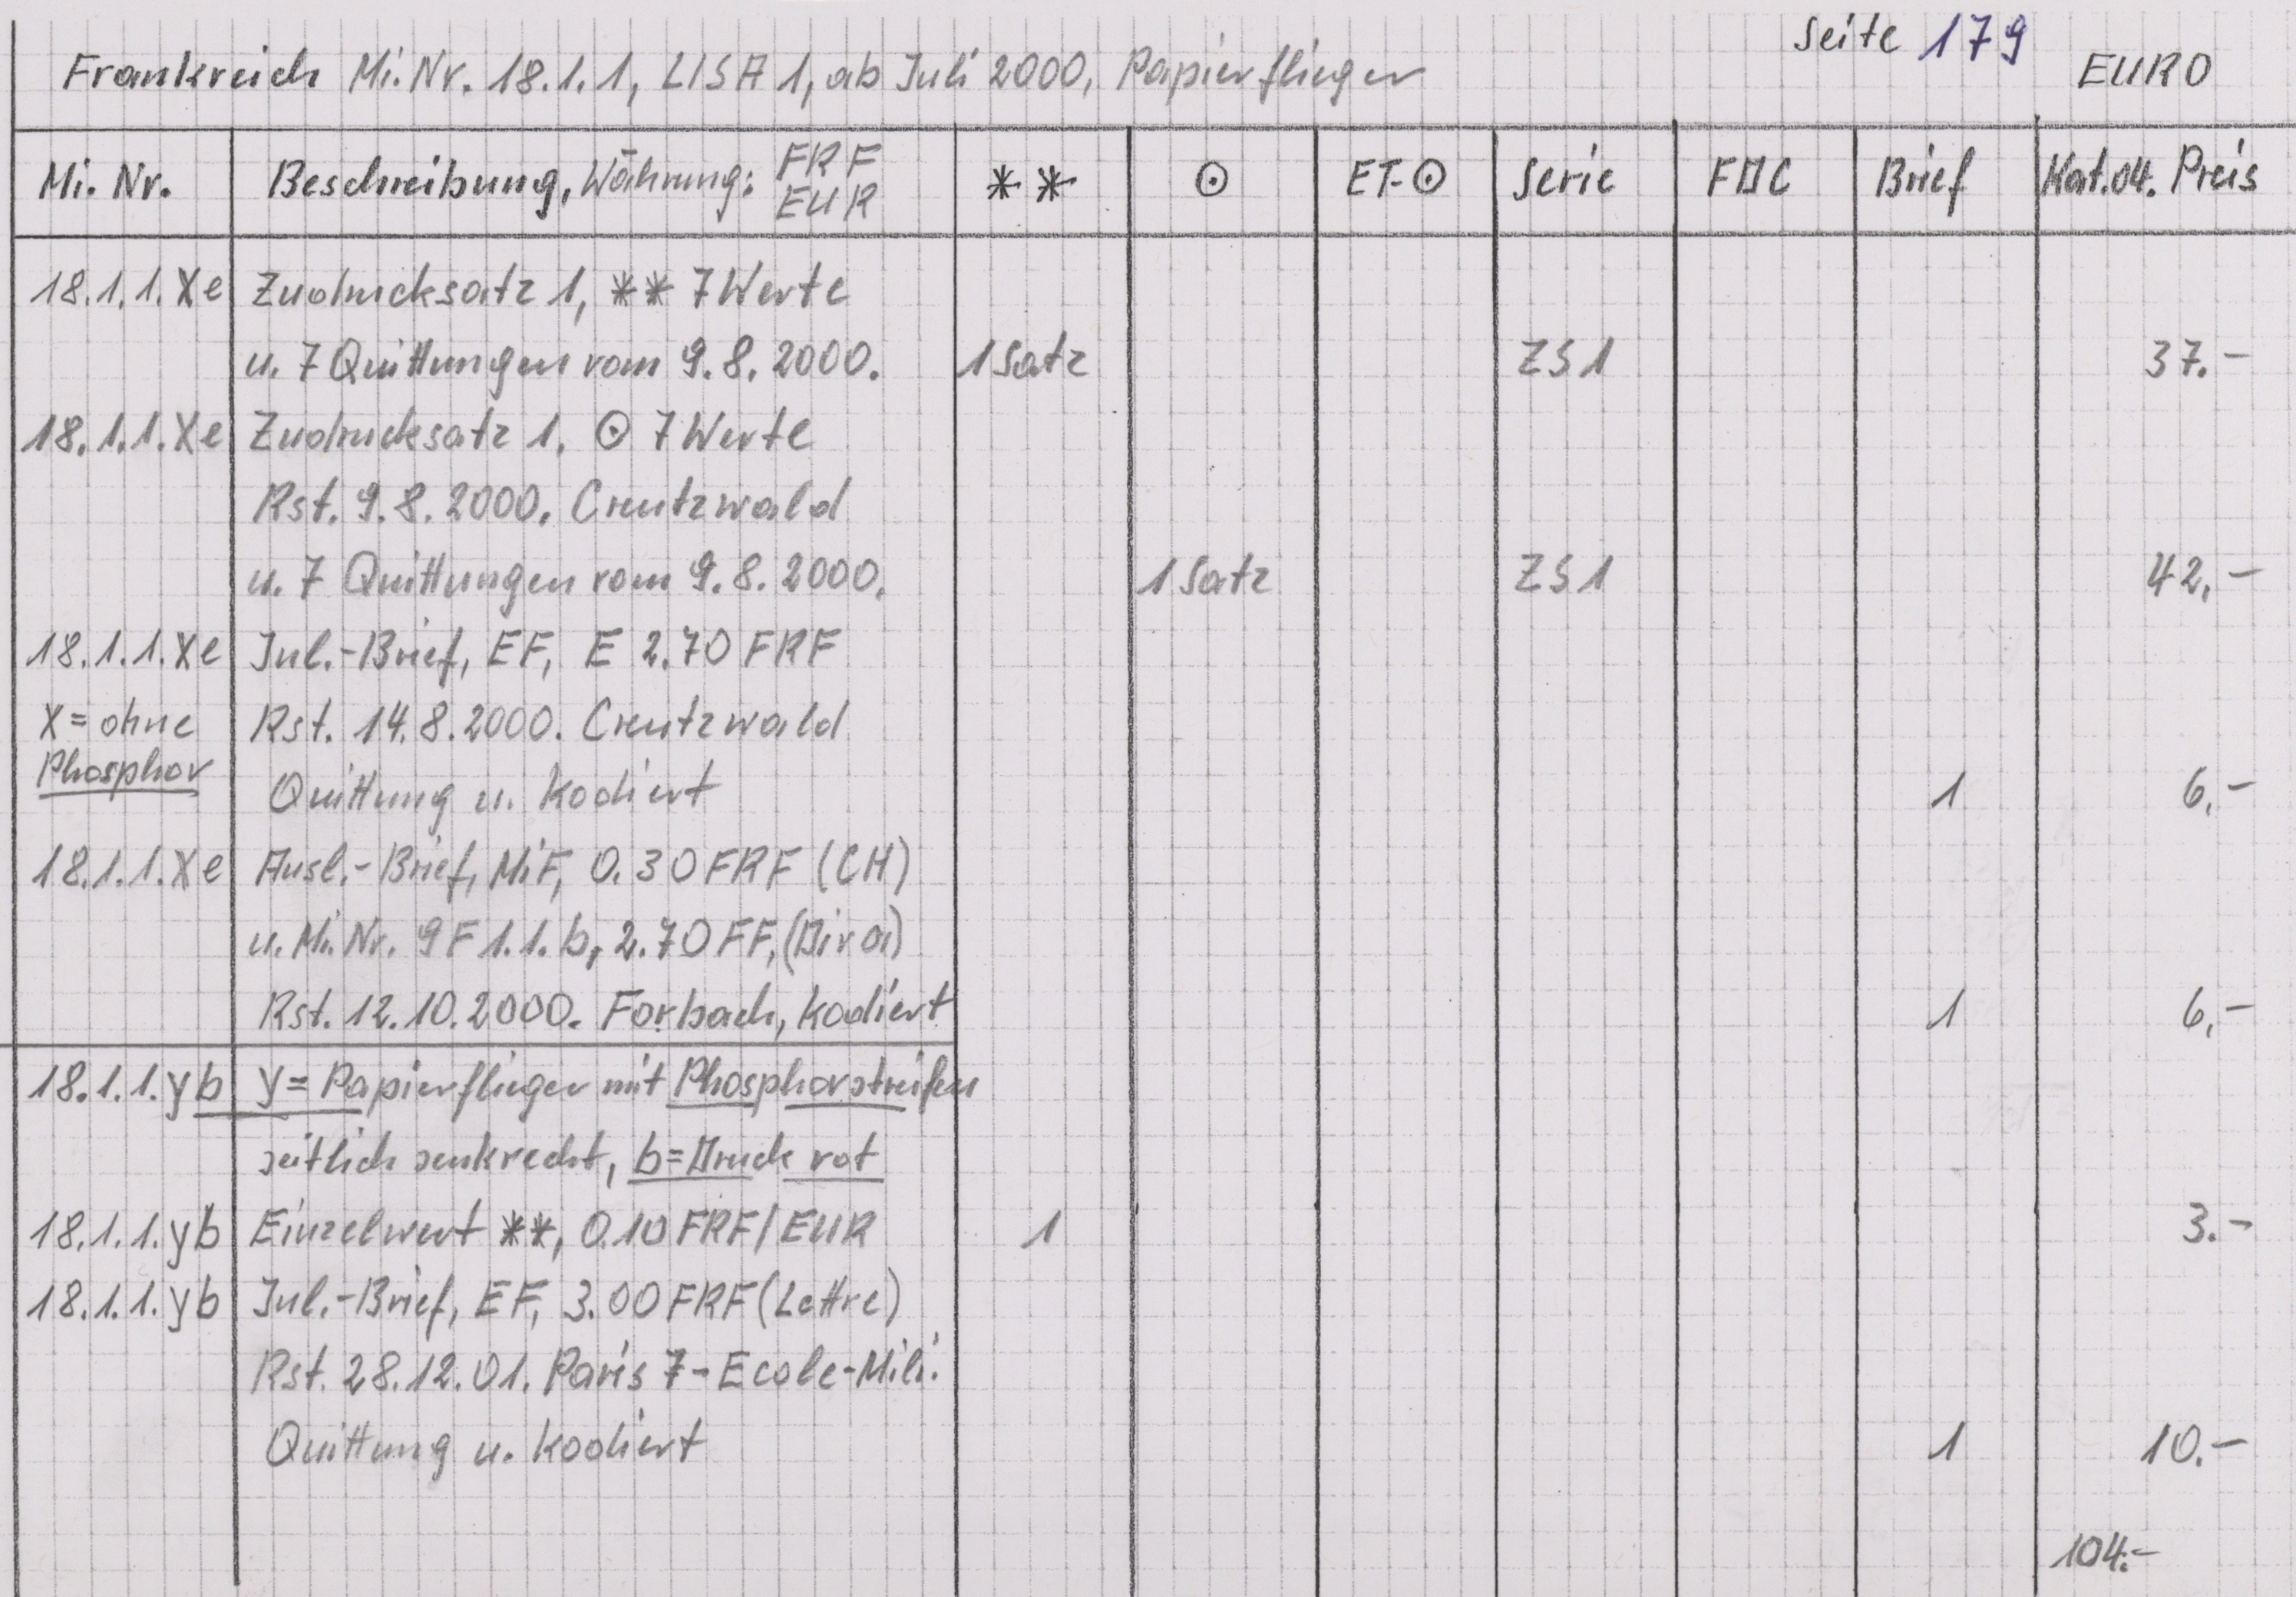 Seite 179
Frankreich Mi.Nr. 18.1.1, LISA 1, ab Juli 2000, Papierflieger EURO
Mi. Nr. Beschreibung, Währung: FRF EUR ** ⊙ ET-⊙ Serie FDC Brief Kat.04. Preis
18.1.1.Xe Zudrucksatz 1, ** 7 Werte
u. 7 Quittungen vom 9.8.2000. 1 Satz ZS1 37.-
18.1.1.Xe Zudrucksatz 1. ⊙ 7 Werte
Rst. 9.8.2000. Creutzwald
u. 7 Quittungen vom 9.8.2000. 1 Satz ZS1 42,-
18.1.1.Xe Inl.-Brief, EF, E 2.70 FRF
X = ohne Rst. 14.8.2000. Creutzwald
Phosphor Quittung u. Kodiert 1 6,-
18.1.1.Xe Ausl.-Brief, MiF, 0.30 FRF (CH)
u. Mi.Nr. 9F 1.1.b, 2.70 FF,
Rst. 12.10.2000. Forbach, Kodiert 1 6,-
18.1.1.yb y = Papierflieger mit Phosphorstreifen
seitlich senkrecht, b = Druck rot
18.1.1.yb Einzelwert **, 0.10 FRF/EUR 1 3.-
18.1.1.yb Inl.-Brief, EF, 3.00 FRF (Lettre)
Rst. 28.12.01. Paris 7-Ecole-Mili.
Quittung u. Kodiert 1 10.-
104.-